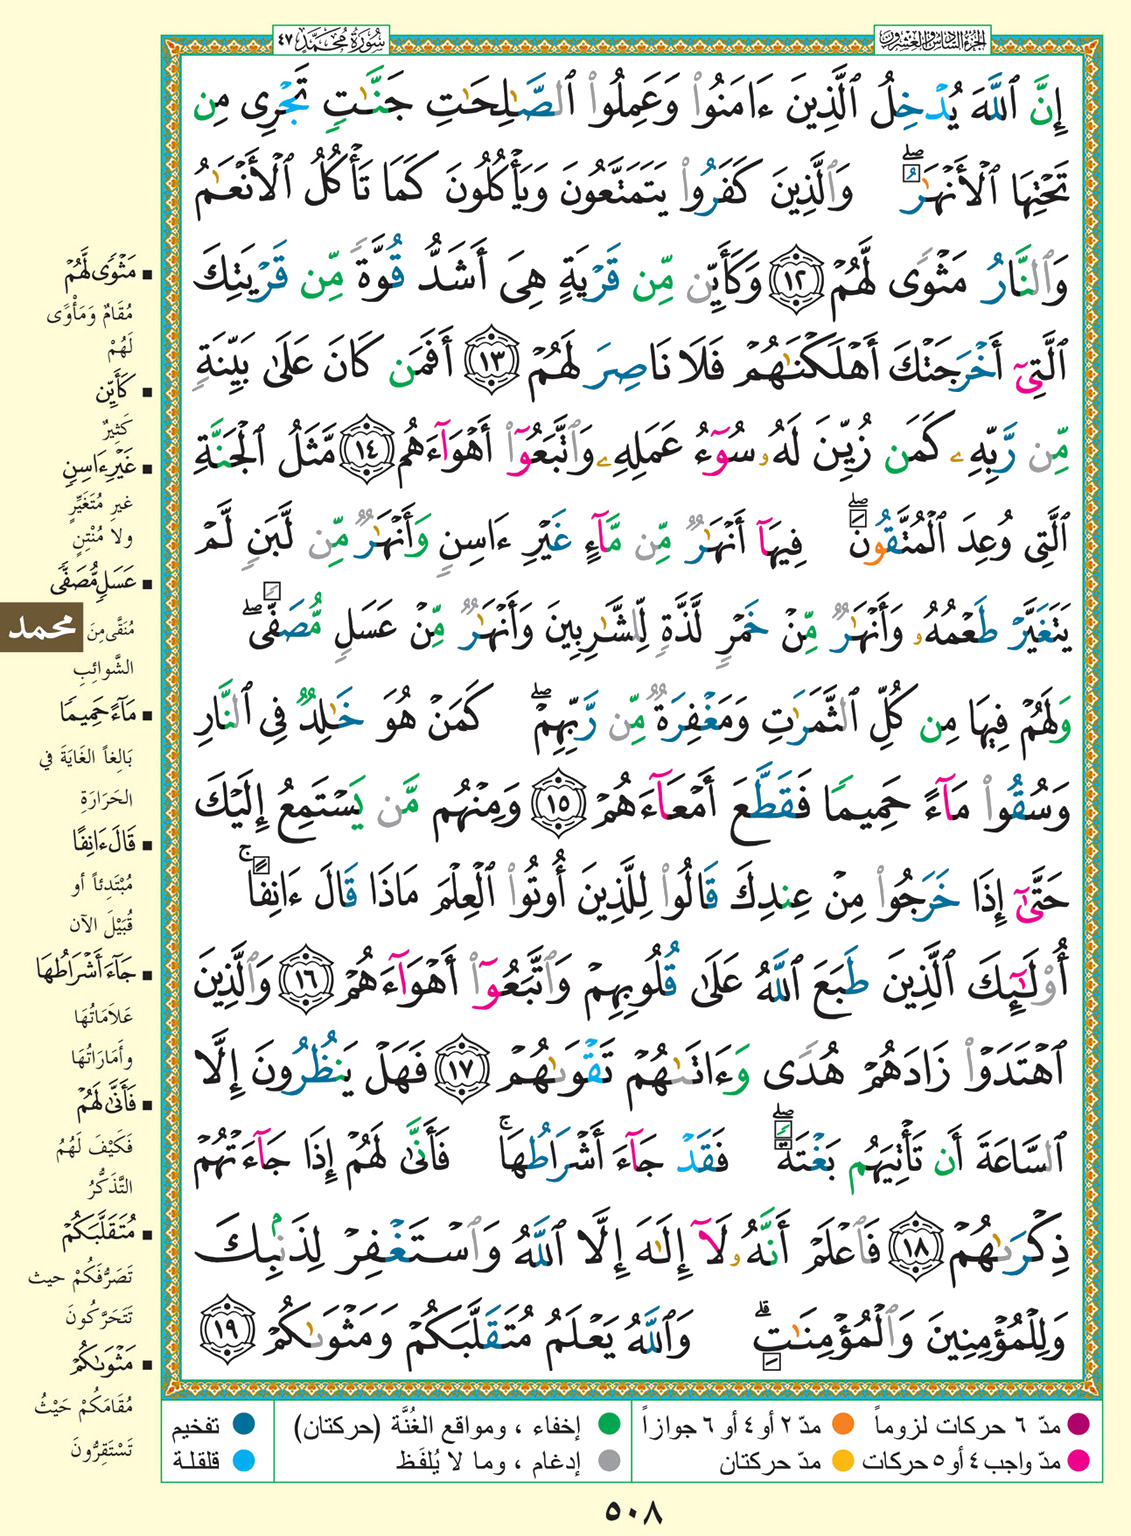 الجزء السادس والعشرون
سورة محمد ٤٧
إِنَّ ٱللَّهَ يُدْخِلُ ٱلَّذِينَ ءَامَنُوا۟ وَعَمِلُوا۟ ٱلصَّـٰلِحَـٰتِ جَنَّـٰتٍ تَجْرِى مِن
تَحْتِهَا ٱلْأَنْهَـٰرُ ۖ وَٱلَّذِينَ كَفَرُوا۟ يَتَمَتَّعُونَ وَيَأْكُلُونَ كَمَا تَأْكُلُ ٱلْأَنْعَـٰمُ
وَٱلنَّارُ مَثْوًى لَّهُمْ ١٢ وَكَأَيِّن مِّن قَرْيَةٍ هِىَ أَشَدُّ قُوَّةً مِّن قَرْيَتِكَ
ٱلَّتِىٓ أَخْرَجَتْكَ أَهْلَكْنَـٰهُمْ فَلَا نَاصِرَ لَهُمْ ١٣ أَفَمَن كَانَ عَلَىٰ بَيِّنَةٍ
مِّن رَّبِّهِۦ كَمَن زُيِّنَ لَهُۥ سُوٓءُ عَمَلِهِۦ وَٱتَّبَعُوٓا۟ أَهْوَآءَهُم ١٤ مَّثَلُ ٱلْجَنَّةِ
ٱلَّتِى وُعِدَ ٱلْمُتَّقُونَ ۖ فِيهَآ أَنْهَـٰرٌ مِّن مَّآءٍ غَيْرِ ءَاسِنٍ وَأَنْهَـٰرٌ مِّن لَّبَنٍ لَّمْ
يَتَغَيَّرْ طَعْمُهُۥ وَأَنْهَـٰرٌ مِّنْ خَمْرٍ لَّذَّةٍ لِّلشَّـٰرِبِينَ وَأَنْهَـٰرٌ مِّنْ عَسَلٍ مُّصَفًّى ۖ
وَلَهُمْ فِيهَا مِن كُلِّ ٱلثَّمَرَٰتِ وَمَغْفِرَةٌ مِّن رَّبِّهِمْ ۖ كَمَنْ هُوَ خَـٰلِدٌ فِى ٱلنَّارِ
وَسُقُوا۟ مَآءً حَمِيمًا فَقَطَّعَ أَمْعَآءَهُمْ ١٥ وَمِنْهُم مَّن يَسْتَمِعُ إِلَيْكَ
حَتَّىٰٓ إِذَا خَرَجُوا۟ مِنْ عِندِكَ قَالُوا۟ لِلَّذِينَ أُوتُوا۟ ٱلْعِلْمَ مَاذَا قَالَ ءَانِفًا ۚ
أُو۟لَـٰٓئِكَ ٱلَّذِينَ طَبَعَ ٱللَّهُ عَلَىٰ قُلُوبِهِمْ وَٱتَّبَعُوٓا۟ أَهْوَآءَهُمْ ١٦ وَٱلَّذِينَ
ٱهْتَدَوْا۟ زَادَهُمْ هُدًى وَءَاتَىٰهُمْ تَقْوَىٰهُمْ ١٧ فَهَلْ يَنظُرُونَ إِلَّا
ٱلسَّاعَةَ أَن تَأْتِيَهُم بَغْتَةً ۖ فَقَدْ جَآءَ أَشْرَاطُهَا ۚ فَأَنَّىٰ لَهُمْ إِذَا جَآءَتْهُمْ
ذِكْرَىٰهُمْ ١٨ فَٱعْلَمْ أَنَّهُۥ لَآ إِلَـٰهَ إِلَّا ٱللَّهُ وَٱسْتَغْفِرْ لِذَنۢبِكَ
وَلِلْمُؤْمِنِينَ وَٱلْمُؤْمِنَـٰتِ ۗ وَٱللَّهُ يَعْلَمُ مُتَقَلَّبَكُمْ وَمَثْوَىٰكُمْ ١٩
مَثْوًى لَّهُمْ
مُقَامٌ وَمَأْوًى
لَهُمْ
كَأَيِّن
كَثِيرٌ
غَيْرِ ءَاسِنٍ
غيرِ مُتَغَيِّرٍ
ولا مُنْتِنٍ
عَسَلٍ مُّصَفًّى
مُنَقًّى مِنَ
الشَّوائِبِ
مَآءً حَمِيمًا
بَالِغاً الغَايَةَ في
الحَرَارَةِ
قَالَ ءَانِفًا
مُبْتَدِئاً أو
قُبَيْلَ الآن
جَآءَ أَشْرَاطُهَا
عَلاَمَاتُهَا
وأَمَارَاتُهَا
فَأَنَّىٰ لَهُمْ
فَكَيْفَ لَهُمُ
التَّذَكُّرُ
مُتَقَلَّبَكُمْ
تَصَرُّفَكُمْ حيث
تَتَحَرَّكُونَ
مَثْوَىٰكُمْ
مُقَامَكُمْ حَيْثُ
تَسْتَقِرُّونَ
محمد
مدّ ٦ حركات لزوماً
مدّ ٢ أو ٤ أو ٦ جوازاً
إخفاء ، ومواقع الغُنَّة (حركتان)
تفخيم
مدّ واجب ٤ أو ٥ حركات
مدّ حركتان
إدغام ، وما لا يُلفَظ
قلقلة
٥٠٨